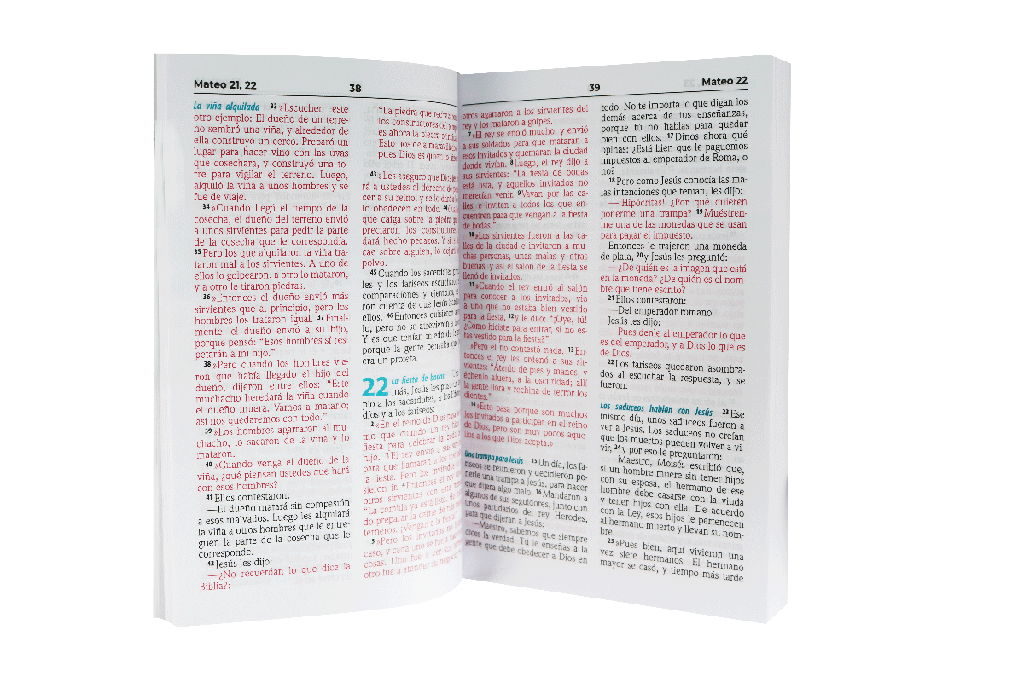 Mateo 21, 22
38
La viña alquilada 33 »Escuchen este
otro ejemplo: El dueño de un terre-
no sembró una viña, y alrededor de
ella construyó un cerco. Preparó un
lugar para hacer vino con las uvas
que cosechara, y construyó una to-
rre para vigilar el terreno. Luego,
alquiló la viña a unos hombres y se
fue de viaje.
34 »Cuando llegó el tiempo de la
cosecha, el dueño del terreno envió
a unos sirvientes para pedir la parte
de la cosecha que le correspondía.
35 Pero los que alquilaron la viña tra-
taron mal a los sirvientes. A uno de
ellos lo golpearon, a otro lo mataron,
y a otro le tiraron piedras.
36 »Entonces el dueño envió más
sirvientes que al principio, pero los
hombres los trataron igual. 37 Final-
mente, el dueño envió a su hijo,
porque pensó: "Esos hombres sí res-
petarán a mi hijo."
38 »Pero cuando los hombres vie-
ron que había llegado el hijo del
dueño, dijeron entre ellos: "Este
muchacho heredará la viña cuando
el dueño muera. Vamos a matarlo;
así nos quedaremos con todo."
39 »Los hombres agarraron al mu-
chacho, lo sacaron de la viña y lo
mataron.
40 »Cuando venga el dueño de la
viña, ¿qué piensan ustedes que hará
con esos hombres?
41 Ellos contestaron:
—El dueño matará sin compasión
a esos malvados. Luego les alquilará
la viña a otros hombres que le entre-
guen la parte de la cosecha que le
corresponde.
42 Jesús les dijo:
—¿No recuerdan lo que dice la
Biblia?:
"La piedra que
los constructores
es ahora la piedra
Esto nos deja
pues Dios es quien lo
43 »Les aseguro que Dios les
rá a ustedes el derecho de
cer a su reino, y se lo dará a
lo obedecen en todo. 44
que caiga sobre la piedra que
preciaron los constructores
dará hecho pedazos. Y si la
cae sobre alguien, lo
polvo.
45 Cuando los sacerdotes
les y los fariseos escucharon
comparaciones y ejemplos,
ron cuenta de que Jesús
ellos. 46 Entonces quisieron
lo, pero no se atrevieron a
Y es que tenían miedo de
porque la gente pensaba que
era un profeta.
22 La fiesta de bodas
más, Jesús les puso
plo a los sacerdotes, a los
díos y a los fariseos:
2 »En el reino de Dios
mo que cuando un rey
fiesta para celebrar la
hijo. 3 El rey envió a sus
para que llamaran a los
la fiesta. Pero los
sieron ir. 4 Entonces el
otros sirvientes con este
"La comida ya está
do preparar la carne de mis
terneros. ¡Vengan a la
5 »Pero los invitados no
caso, y cada uno se fue a
cosas. Uno fue a ver
otro fue a atender su negocio
39
Mateo 22
otros agarraron a los sirvientes del
rey y los mataron a golpes.
7 »El rey se enojó mucho, y envió
a sus soldados para que mataran a
esos invitados y quemaran la ciudad
donde vivían. 8 Luego, el rey dijo a
sus sirvientes: "La fiesta de bodas
está lista, y aquellos invitados no
merecían venir. 9 Vayan por las ca-
lles e inviten a todos los que en-
cuentren para que vengan a la fiesta
de bodas."
10 »Los sirvientes fueron a las ca-
lles de la ciudad e invitaron a mu-
chas personas, unas malas y otras
buenas; y así el salón de la fiesta se
llenó de invitados.
11 »Cuando el rey entró al salón
para conocer a los invitados, vio
a uno que no estaba bien vestido
para la fiesta, 12 y le dijo: "¡Oye, tú!
¿Cómo hiciste para entrar, si no es-
tás vestido para la fiesta?"
»Pero él no contestó nada. 13 En-
tonces el rey les ordenó a sus sir-
vientes: "Átenlo de pies y manos, y
échenlo afuera, a la oscuridad; allí
la gente llora y rechina de terror los
dientes."
14 »Esto pasa porque son muchos
los invitados a participar en el reino
de Dios, pero son muy pocos aque-
llos a los que Dios acepta.»
Una trampa para Jesús 15 Un día, los fa-
riseos se reunieron y decidieron po-
nerle una trampa a Jesús, para hacer
que dijera algo malo. 16 Mandaron a
algunos de sus seguidores, junto con
unos partidarios del rey Herodes,
para que dijeran a Jesús:
—Maestro, sabemos que siempre
dices la verdad. Tú le enseñas a la
gente que debe obedecer a Dios en
todo. No te importa lo que digan los
demás acerca de tus enseñanzas,
porque tú no hablas para quedar
bien con ellos. 17 Dinos ahora qué
opinas: ¿Está bien que le paguemos
impuestos al emperador de Roma, o
no?
18 Pero como Jesús conocía las ma-
las intenciones que tenían, les dijo:
—¡Hipócritas! ¿Por qué quieren
ponerme una trampa? 19 Muéstren-
me una de las monedas que se usan
para pagar el impuesto.
Entonces le trajeron una moneda
de plata, 20 y Jesús les preguntó:
—¿De quién es la imagen que está
en la moneda? ¿De quién es el nom-
bre que tiene escrito?
21 Ellos contestaron:
—Del emperador romano.
Jesús les dijo:
—Pues denle al emperador lo que
es del emperador, y a Dios lo que es
de Dios.
22 Los fariseos quedaron asombra-
dos al escuchar la respuesta, y se
fueron.
Los saduceos hablan con Jesús 23 Ese
mismo día, unos saduceos fueron a
ver a Jesús. Los saduceos no creían
que los muertos pueden volver a vi-
vir, 24 y por eso le preguntaron:
—Maestro, Moisés escribió que,
si un hombre muere sin tener hijos
con su esposa, el hermano de ese
hombre debe casarse con la viuda
y tener hijos con ella. De acuerdo
con la Ley, esos hijos le pertenecen
al hermano muerto y llevan su nom-
bre.
25 »Pues bien, aquí vivieron una
vez siete hermanos. El hermano
mayor se casó, y tiempo más tarde